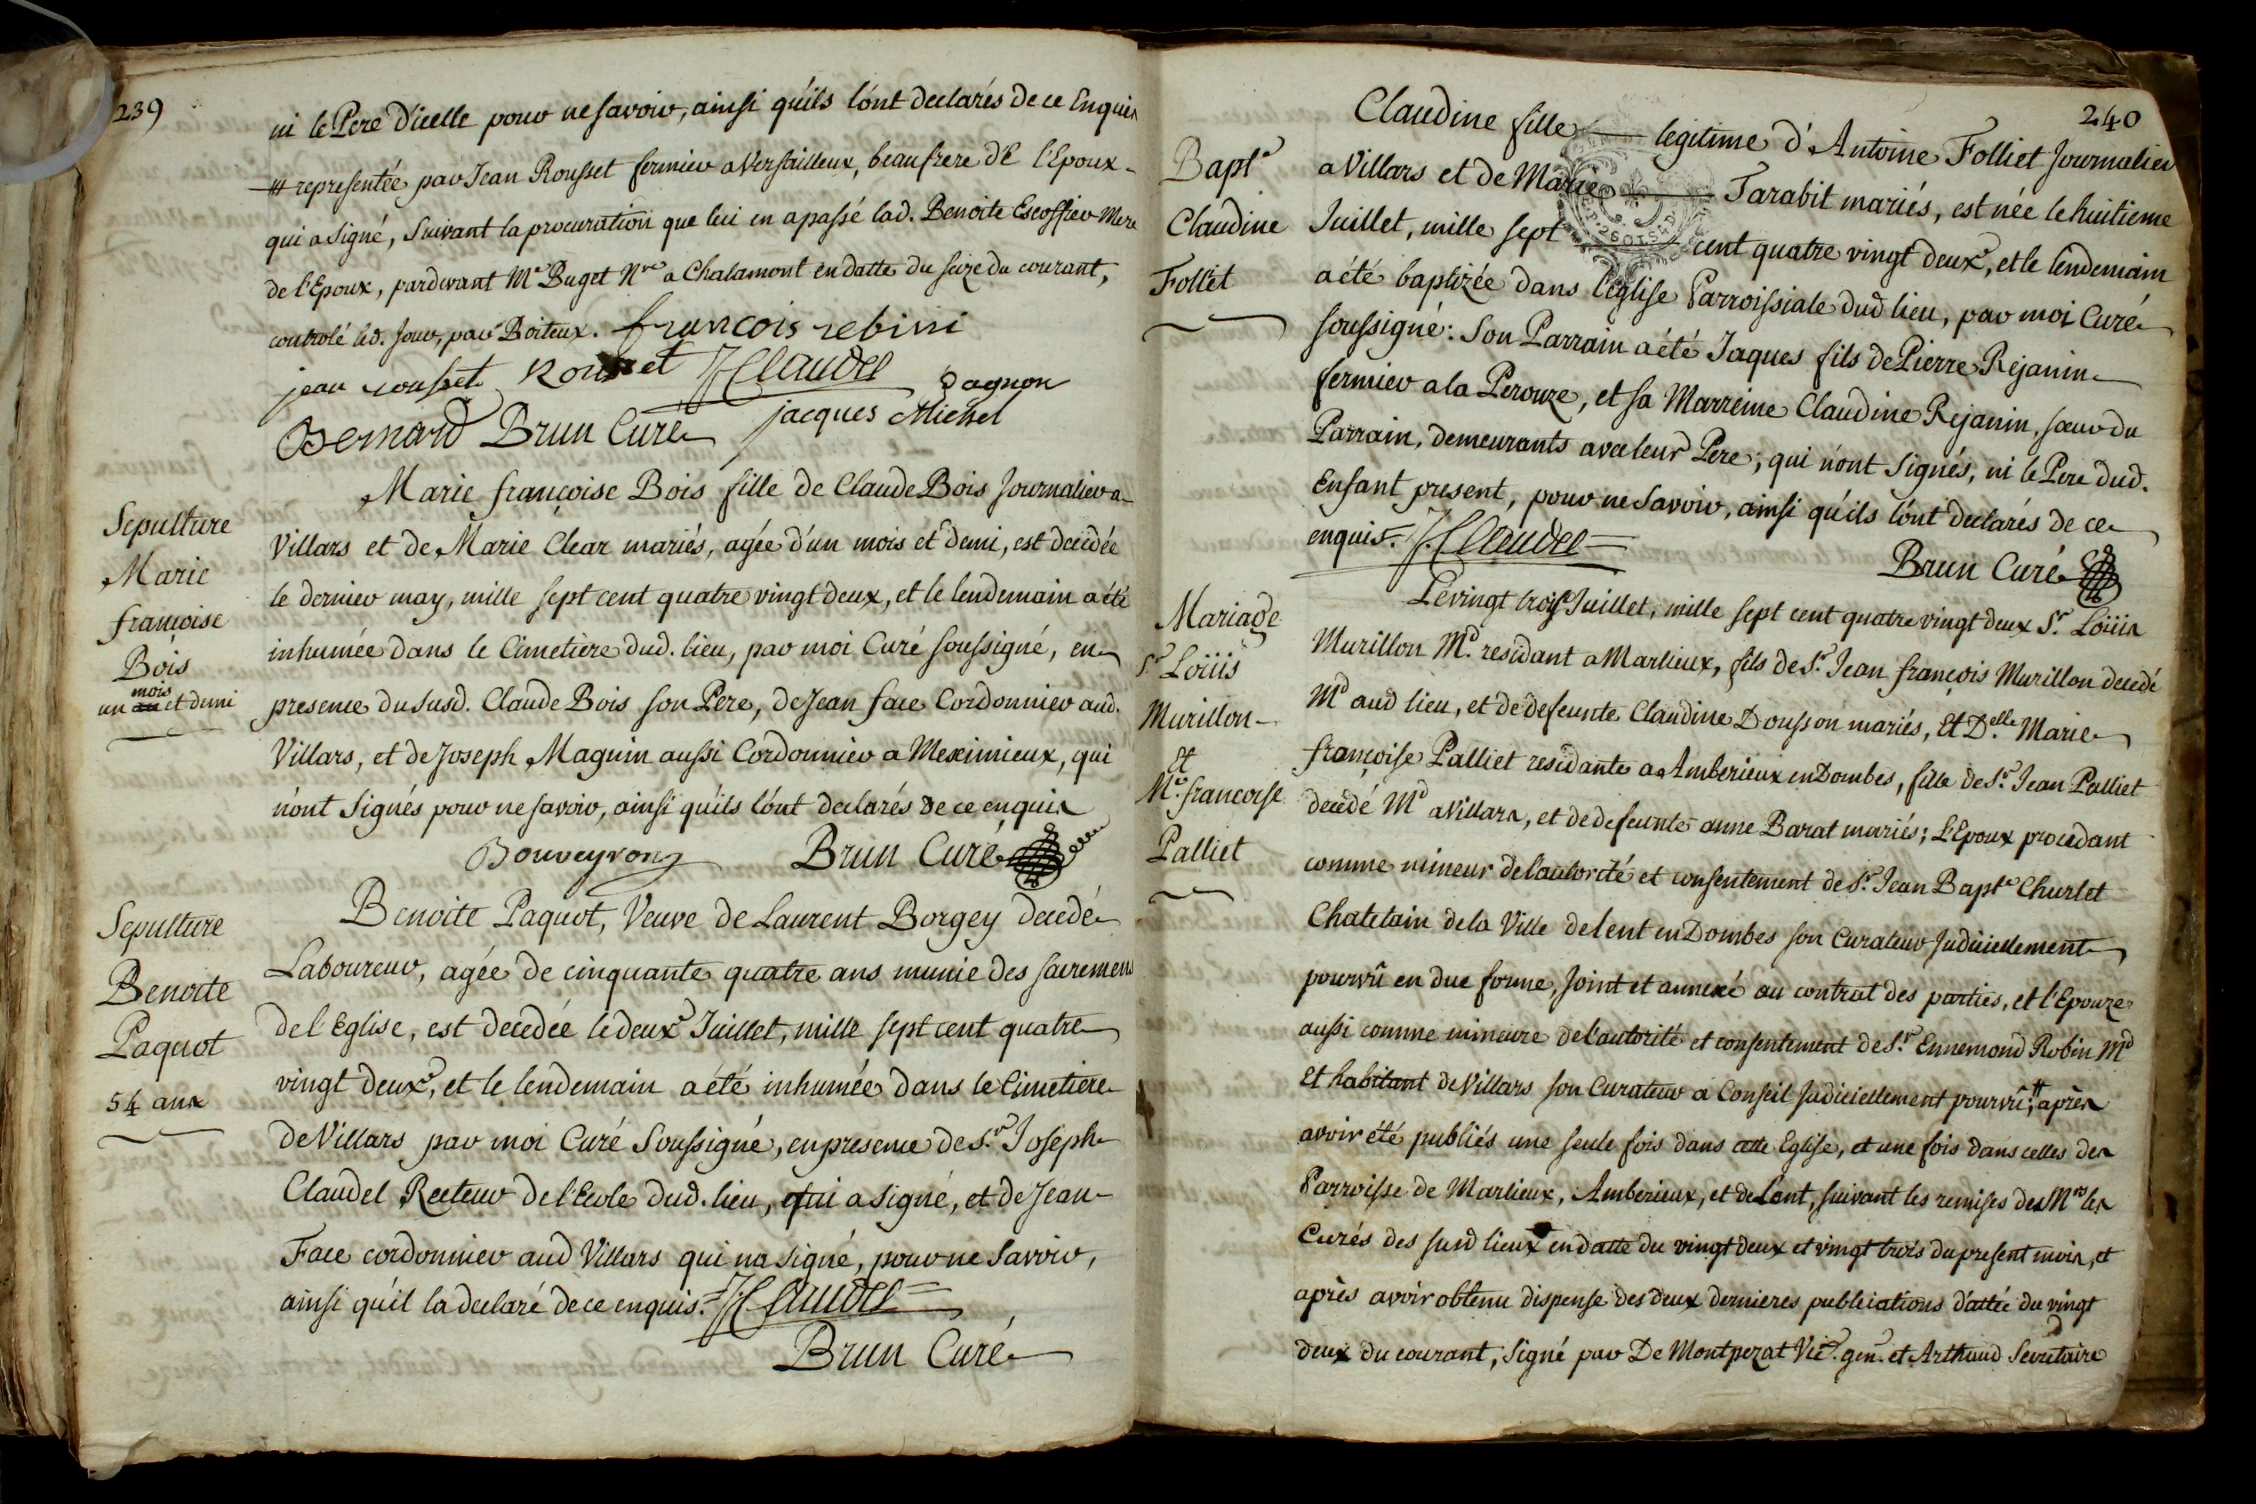 239
ni le Pere d'icelle pour ne savoir, ainsi qu'ils l'ont declarés de ce Enquis
representée par Jean Rousset fermier a Versailleux, beaufrere de l'Epoux
qui a signé, suivant la procuration que lui en a passé lad. Benoite Escoffier Mere
de l'Epoux, pardevant Me Buget Nre a Chalamont en datte du seize du courant,
controlé led. Jour, par Boiteux. francois rebini
jean rousset Rousset J Claudel Dagnon
Bernard Brun Curé jacques Michel
Sepulture
Marie
françoise
Bois
mois
un an et demi
Marie françoise Bois fille de Claude Bois Journalier a
Villars et de Marie Clear mariés, agée d'un mois et demi, est decedée
le dernier may, mille sept cent quatre vingt deux, et le lendemain a été
inhumée dans le Cimetiere dud. lieu, par moi Curé soussigné, en
presence du susd. Claude Bois son Pere, de Jean face Cordonnier aud.
Villars, et de Joseph Maguin aussi Cordonnier a Meximieux, qui
n'ont signés pour ne savoir, ainsi qu'ils l'ont declarés de ce enquis
Bouveyron Brun Curé
Sepulture
Benoite
Paquot
54 ans
Benoite Paquot, Veuve de Laurent Borgey decedé
Laboureur, agée de cinquante quatre ans munie des sacremens
de l'Eglise, est decedée le deuxe Juillet, mille sept cent quatre
vingt deuxe, et le lendemain a été inhumée dans le Cimetiere
de Villars par moi Curé Soussigné, en presence de Sr Joseph
Claudel Recteur de l'Ecole dud. lieu, qui a signé, et de Jean
Face cordonnier aud Villars qui na signé, pour ne savoir,
ainsi qu'il la declaré de ce enquis. J Claudel
Brun Curé
240
Bapte
Claudine
Folliet
Claudine fille legitime d'Antoine Folliet Journalier
a Villars et de Marie Tarabit mariés, est née le huitieme
Juillet, mille sept cent quatre vingt deuxe, et le lendemain
a été baptizée dans l'eglise Parroissiale dud lieu, par moi Curé
soussigné: Son Parrain a été Jaques fils de Pierre Rejanin
fermier a la Perouze, et sa Marreine Claudine Rejanin, sœur du
Parrain, demeurants avec leur Pere; qui n'ont signés, ni le Pere dud.
Enfant present, pour ne savoir, ainsi qu'ils l'ont declarés de ce
enquis. J. Claudel
Brun Curé
Mariage
Sr Loüis
Murillon
et
Mie francoise
Palliet
Le vingt trois Juillet, mille sept cent quatre vingt deux Sr. Loüis
Murillon Md. residant a Marlieux, fils de Sr. Jean françois Murillon decedé
Md aud lieu, et de defeunte Claudine Dousson mariés, Et Delle Marie
françoise Palliet residante a Amberieux en Dombes, fille de Sr. Jean Palliet
decedé Md a Villars, et de defeunte anne Barat mariés; L'Epoux procedant
comme mineur de l'autorité et consentement de Sr. Jean Bapte Churlet
Chatelain de la Ville de Lent en Dombes son Curateur Judiciellement
pourvû en due forme, joint et annexé au contrat des parties, et l'Epouze
aussi comme mineure de l'autorité et consentement de Sr. Ennemond Robin Md
Et habitant de Villars son Curateur a Conseil Judiciellement pourvû; après
avoir été publiés une seule fois dans cette Eglise, et une fois dans celles des
Parroisse de Marlieux, Amberieux, et de Lent, suivant les remises des Mrs les
Curés des susd lieux en datte du vingt deux et vingt trois du present mois, et
après avoir obtenu dispense des deux dernieres publications d'attée du vingt
deux du courant, signé par De Montpezat Vic. gen. et Arthaud Secretaire